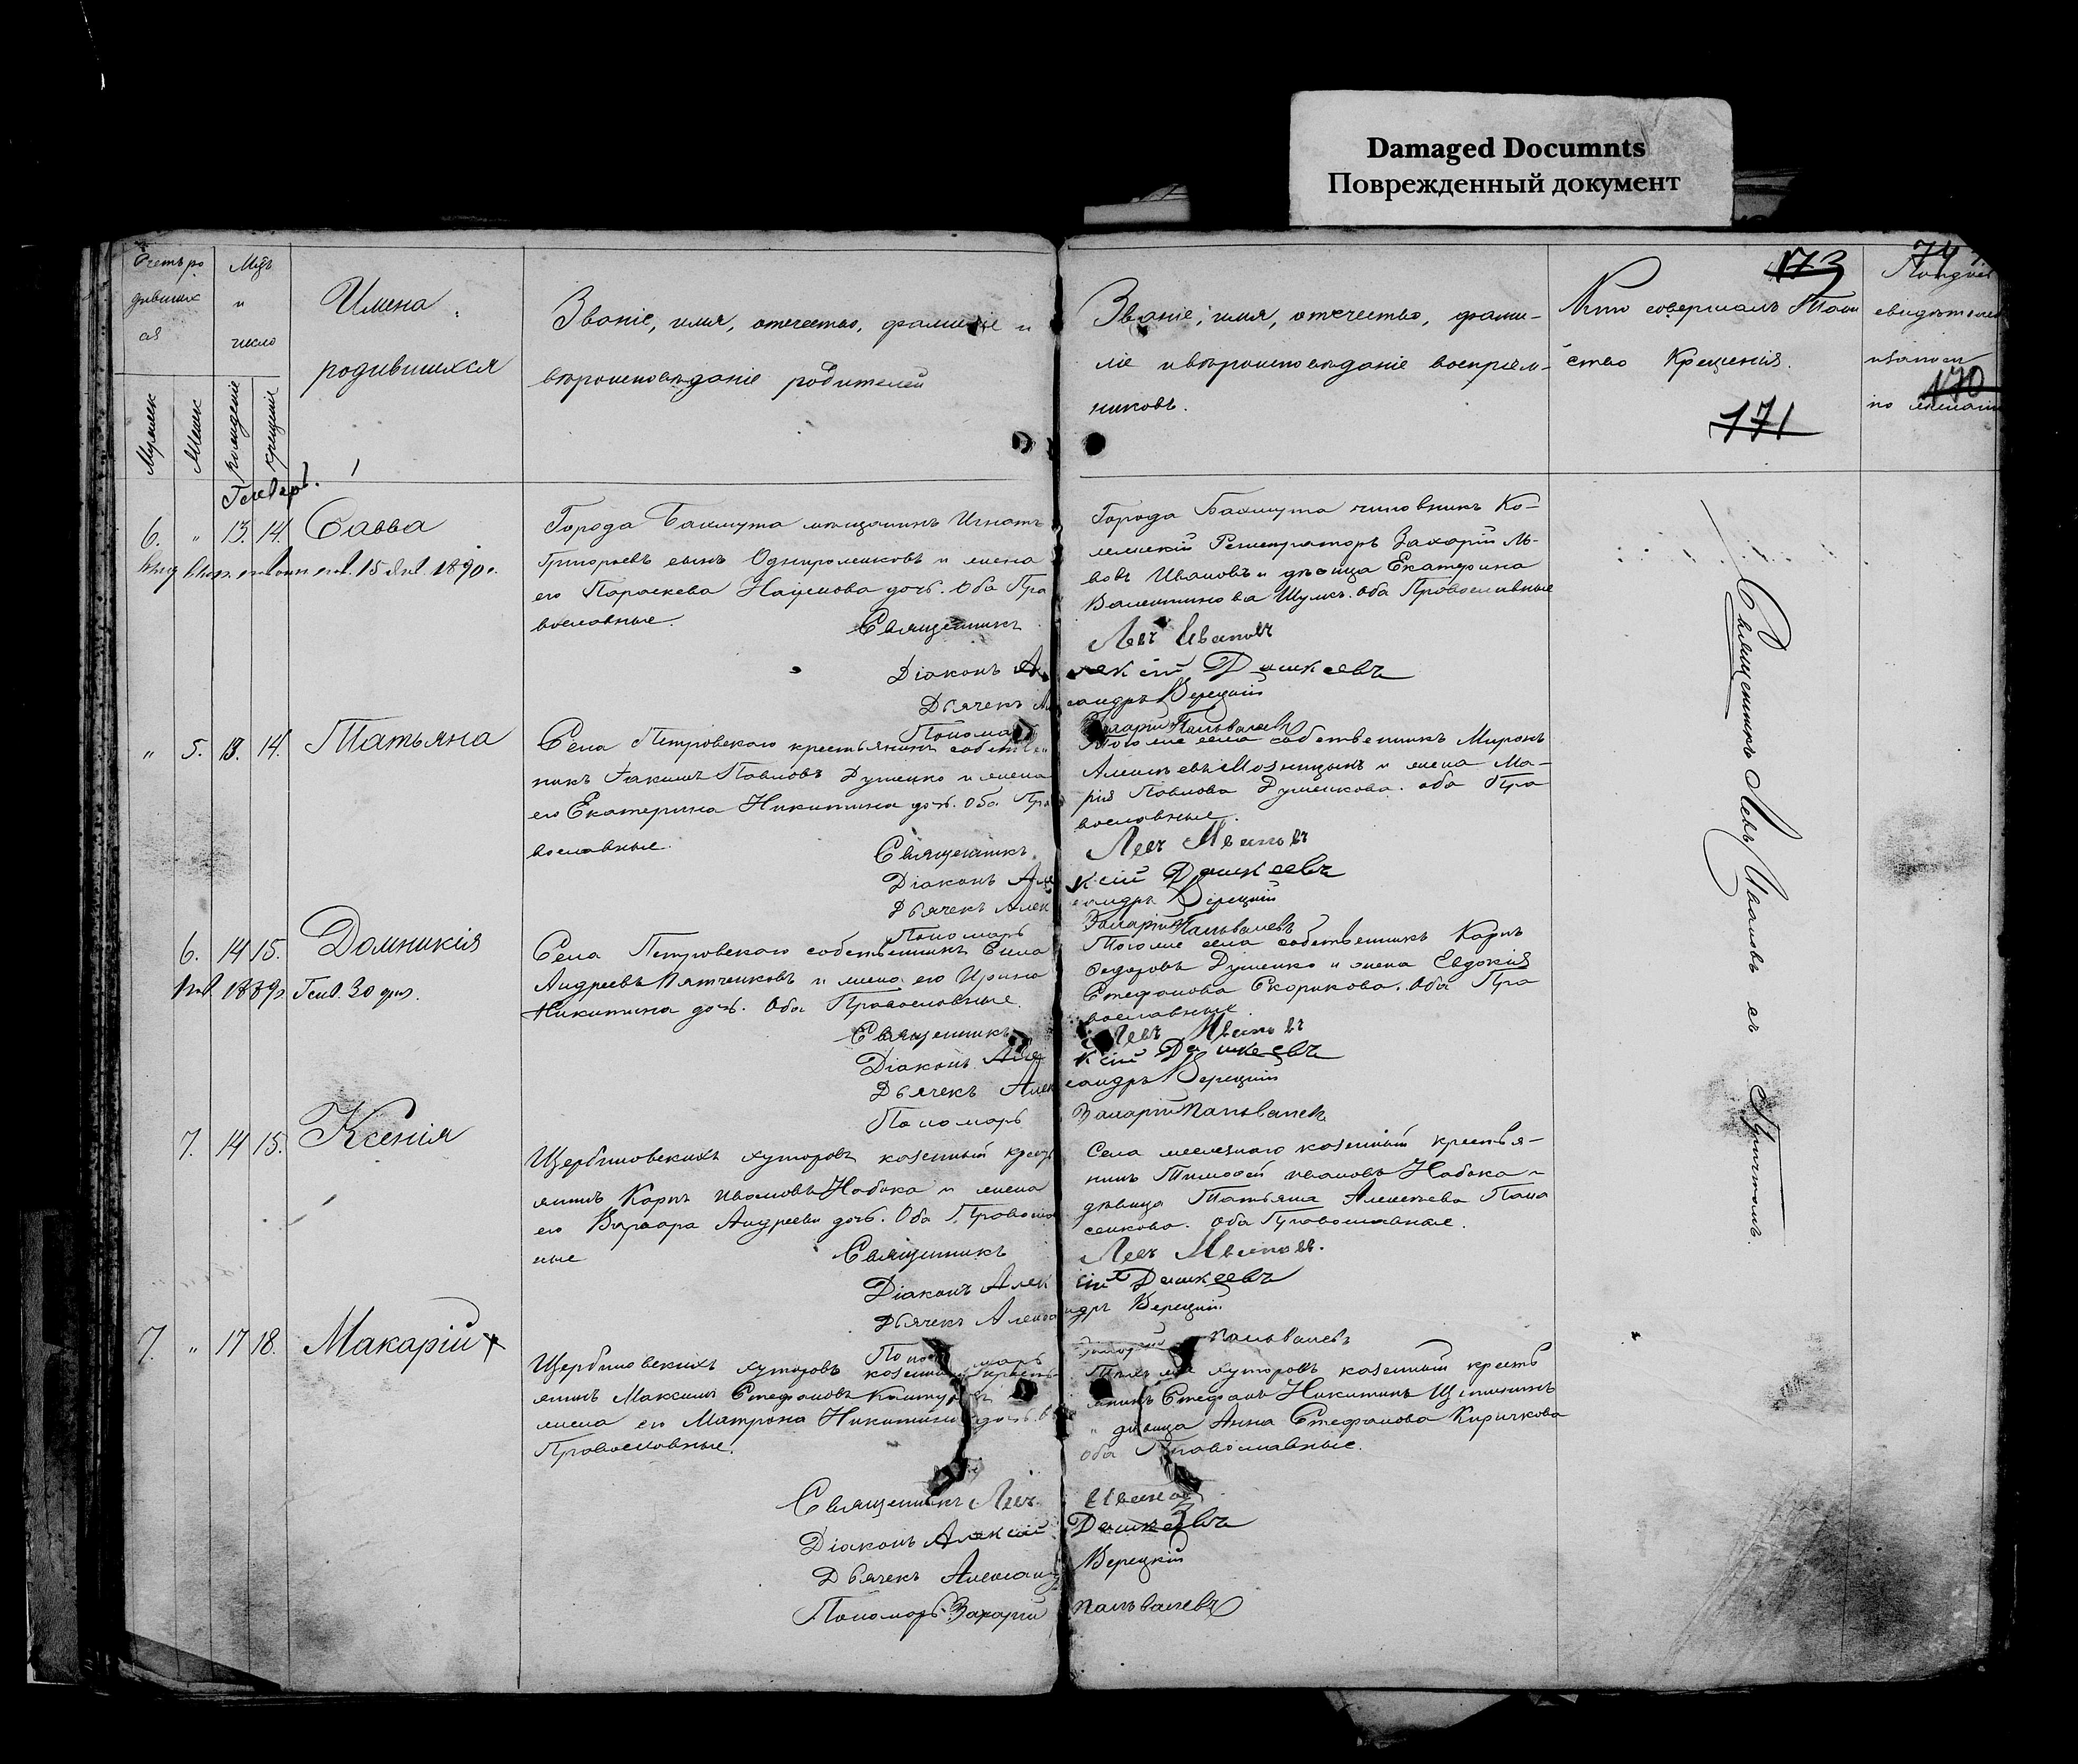 Damaged Documnts
Поврежденный документ
173
74
Счетъ ро
дивших
ся
Мцъ
и
число
Имена
родившихся
Званіе, имя, отечество, фамиліе и
вѣроисповѣданіе родителей
Званіе, имя, отечество, фами-
ліе и вѣроисповѣданіе воспріем-
никовъ.
Кто совершалъ Таин
ство Крещенія.
171
170
Мужеск
Женск
рожденіе
крещеніе
1
Генварь.
6. " 13. 14. Савва
15 1890 г.
Города Бахмута мѣщанинъ Игнатъ
Григорьевъ сынъ и жена
его Параскева Наумова дочь. Оба Пра
вославные.
Города Бахмута чиновникъ Ко-
лежскій Регистраторъ Захарій Ль-
вовъ Ивановъ и дѣвица Екатерина
Валентинова Оба Православные
Священникъ Левъ Ивановъ
Діаконъ Алексій Дашкеевъ
Дьячекъ Александръ Верецкій
Пономарь
" 5. 13. 14. Татьяна
Села Петровскаго крестьянинъ собствен
никъ Іакимъ Павловъ Душенко и жена
его Екатерина Никитина дочь. Оба Пра
вославные.
Тогоже села собственникъ Миронъ
и жена Ма-
рія Павлова Душенкова. оба Пра
вославные.
Священникъ Левъ Ивановъ
Діаконъ Алексій Дашкеевъ
Дьячекъ Александръ Верецкій
Пономарь Захарій
6. 14 15. Домникія
1889 г. Генв. 30 дня.
Села Петровскаго собственникъ
Андреевъ и жена его Ирина
Никитина дочь. Оба Православные.
Тогоже села собственникъ Карпъ
Федоровъ Душенко и жена Евдокія
Стефанова Скорикова. Оба Пра
вославные.
Священникъ Левъ Ивановъ
Діаконъ Алексій Дашкеевъ
Дьячекъ Александръ Верецкій
Пономарь Захарій
7. 14 15. Ксенія
Щербиновскихъ хуторовъ козенный крест
янинъ Карпъ Ивановъ Набока и жена
его Варвара Андреева дочь. Оба Православ
ные
Села козенный крестья-
нинъ Тимофей Ивановъ Набока и
дѣвица Татьяна Алексѣева Пана
сенкова. Оба Православные.
Священникъ Левъ Ивановъ.
Діаконъ Алексій Дашкеевъ
Дьячекъ Александръ Верецкій
Пономарь
7. " 17 18. Макарій
Щербиновскихъ хуторовъ козенный кресть
янинъ Максимъ Стефановъ
жена его Матрона Никитина дочь.
Православные.
хуторовъ козенный кресть
янинъ Стефанъ Никитинъ
" дѣвица Анна Стефанова Киричкова
оба Православные.
Священникъ Левъ Ивановъ
Діаконъ Алексій Дашкеевъ
Дьячекъ Александръ Верецкій
Пономарь Захарій
Священникъ Левъ Ивановъ съ Причтомъ.